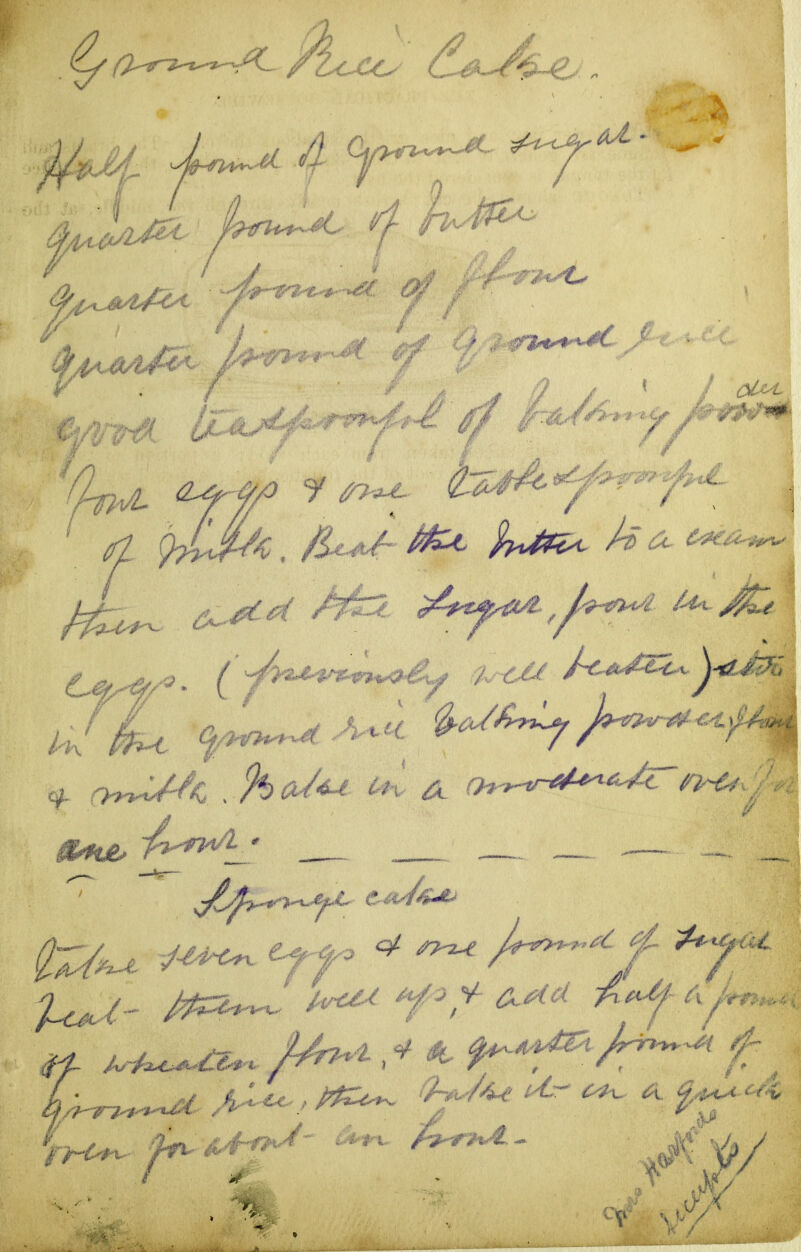 Ground Rice Cake.
Half pound of ground sugar.
quarter pound of butter
quarter pound of flour
quarter pound of ground rice
good teaspoonful of baking powder
four eggs & one tablespoonful
of milk. Beat the butter to a cream
then add the sugar, pour in the
eggs. (previously well beaten) stir
in the ground rice baking powder, flour
& milk. Bake in a moderate oven for
one hour.
Sponge cake
Take seven eggs & one pound of sugar
beat them well up, & add half a pound
of wheaten flour, & a quarter pound of
ground rice, then bake it in a quick
oven for about an hour.
Mrs Harfords
receipts